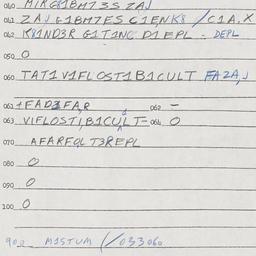 040 MIRG81BM73S ZAJ
041 ZAJ 61BM7ES C1ENK8 / C1A.X
042 K81ND3R G1T1NC D1EPL - DEPL
050 0
060 TAT1 V1FLOST1B1CULT FA2A,J
061 1FAD3FA,R 062 -
063 V1FLOST1,B1CULT- 064 0
070 AFARFQLT3REPL
080 0
090 0
100 0
902 M1STUM (/033060